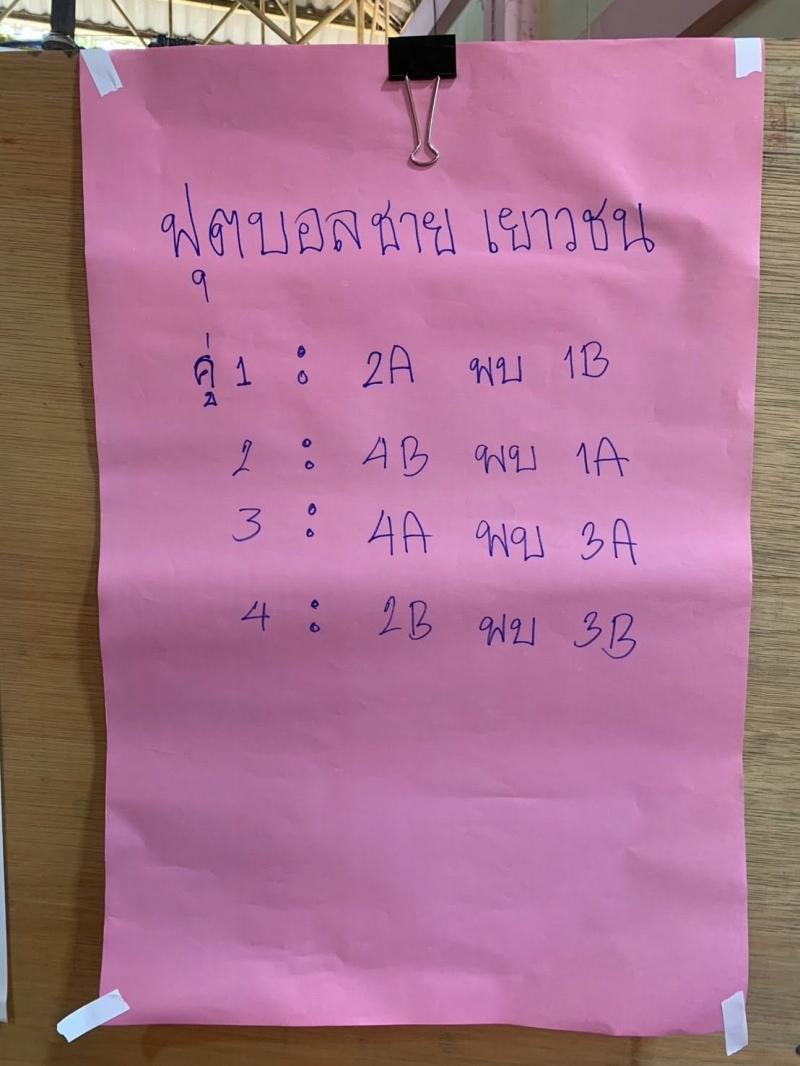 ฟุตบอลชาย เยาวชน
คู่ 1 : 2A พบ 1B
2 : 4B พบ 1A
3 : 4A พบ 3A
4 : 2B พบ 3B